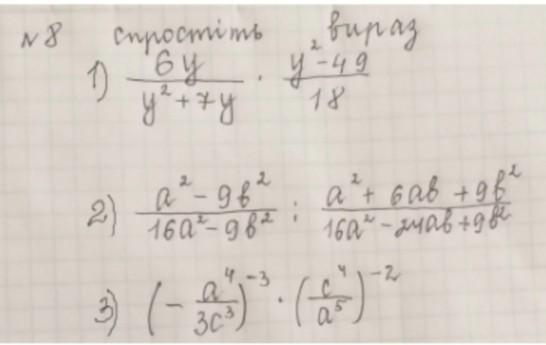 №8 спростіть вираз
1) \frac{6y}{y^2+7y} \cdot \frac{y^2-49}{18}
2) \frac{a^2-9b^2}{16a^2-9b^2} : \frac{a^2+6ab+9b^2}{16a^2-24ab+9b^2}
3) \left(-\frac{a^4}{3c^3}\right)^{-3} \cdot \left(\frac{c^4}{a^5}\right)^{-2}